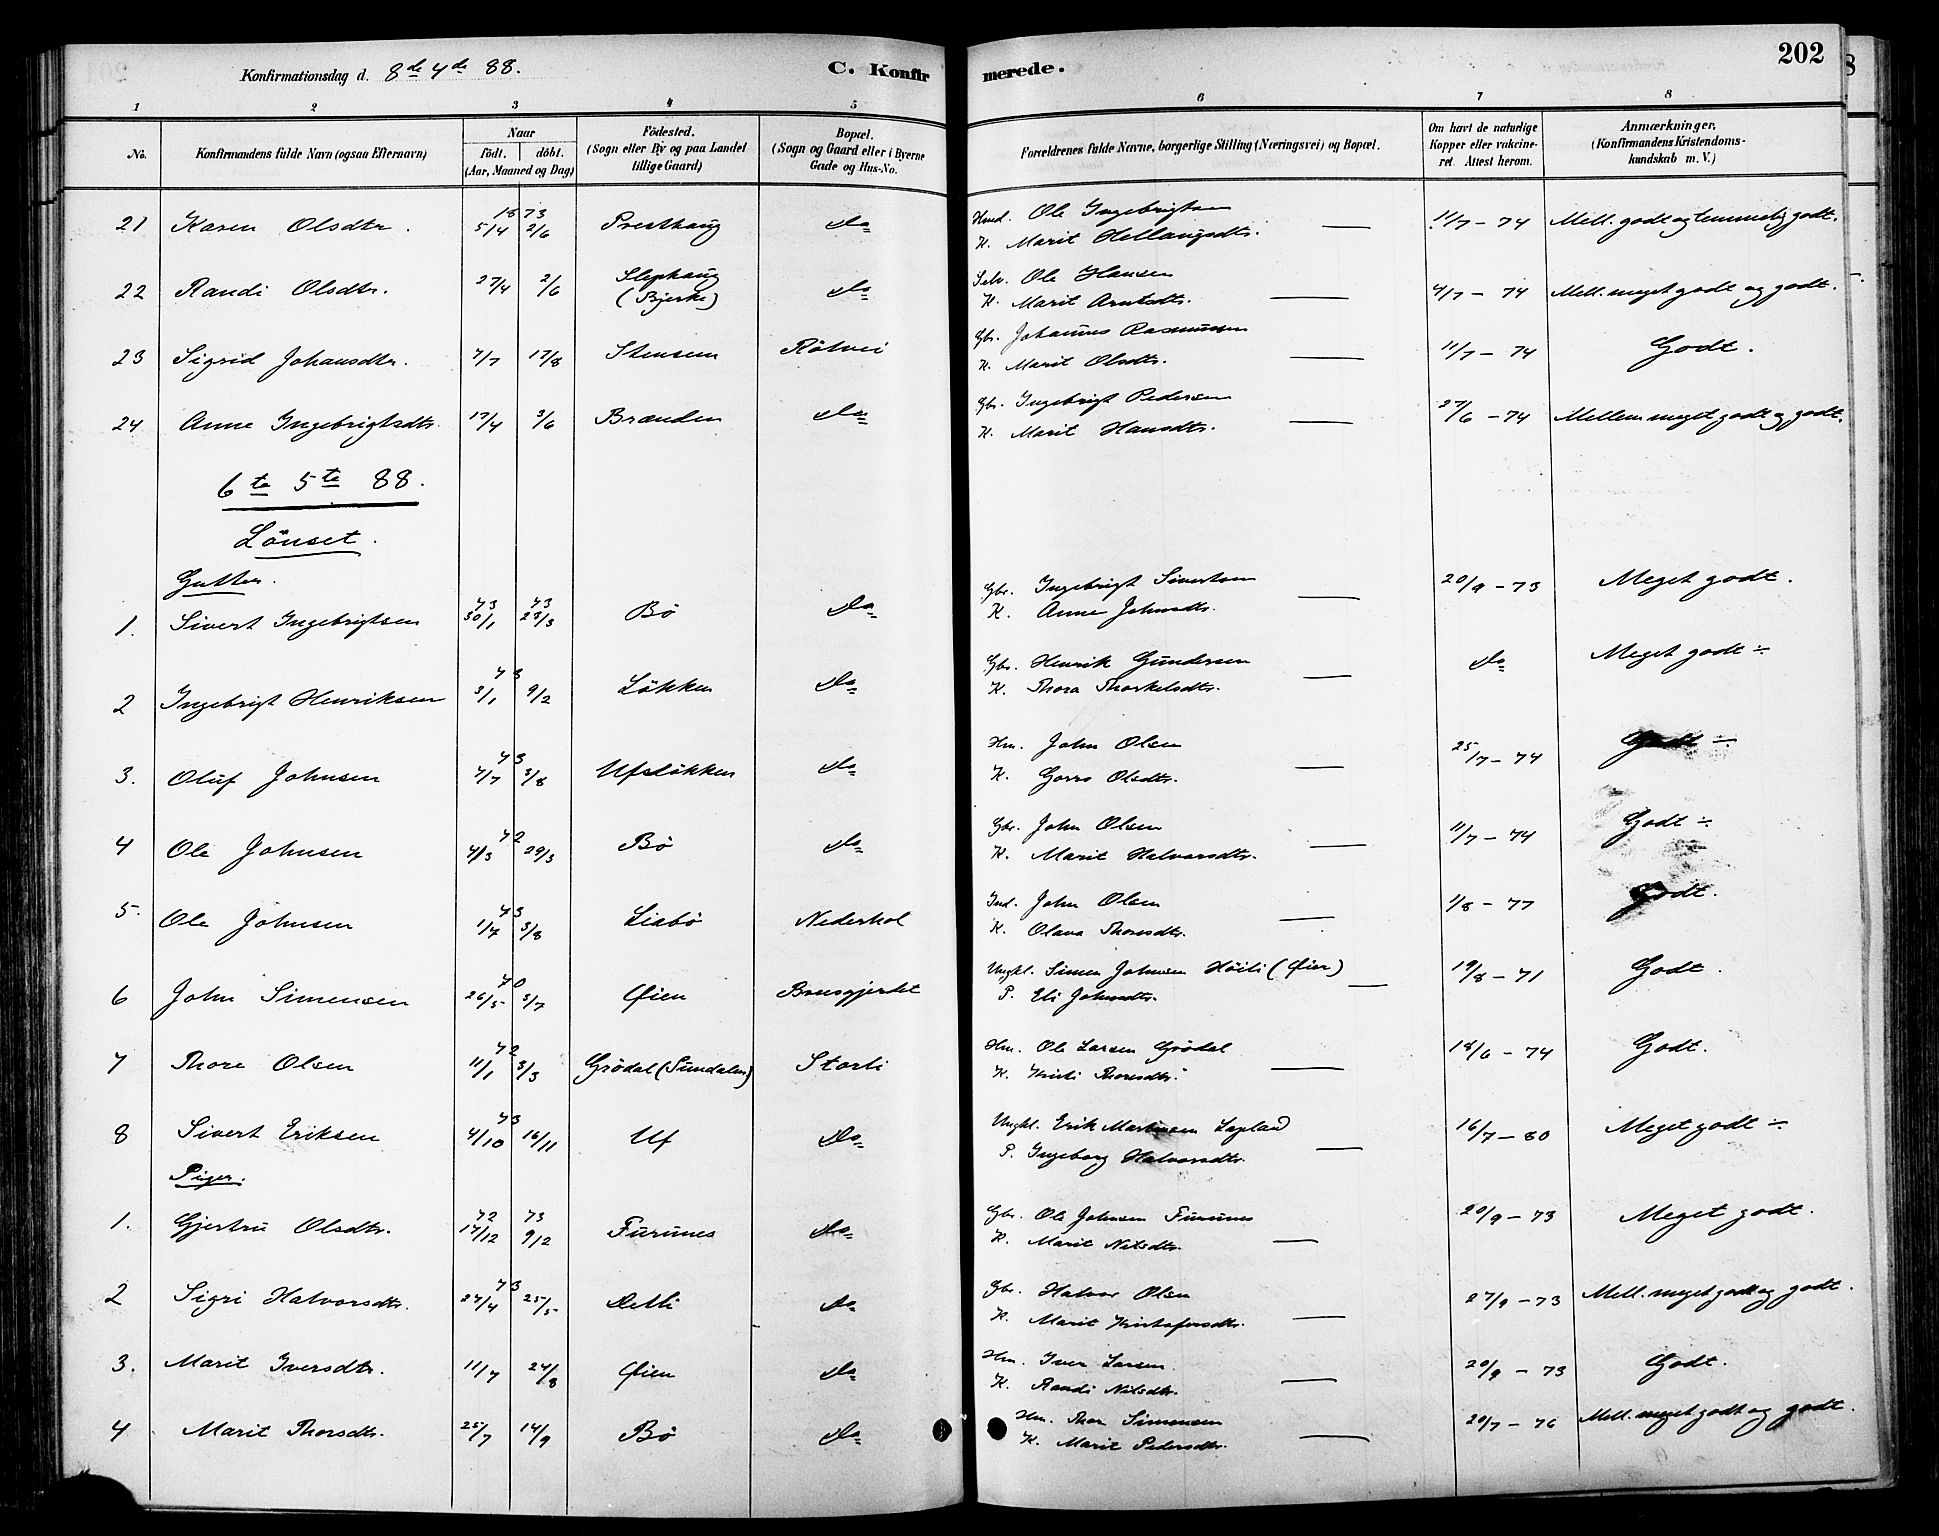 Konfirmationsdag d. 8de 4de 88. C. Konfirmerede. 202
1 2 3 4 5 6 7 8
No. Konfirmandens fulde Navn (ogsaa Efternavn) Naar födt. döbt. (Aar, Maaned og Dag) Födested. (Sogn eller By og paa Landet tillige Gaard) Bopæl. (Sogn og Gaard eller i Byerne Gade og Hus-No. Forældrenes fulde Navne, borgerlige Stilling (Næringsvei) og Bopæl. Om havt de naturlige Kopper eller vakcineret. Attest herom. Anmærkninger, (Konfirmandens Kristendomskundskab m. V.)
21 Karen Olsdtr. 1873 5/4 2/6 Presthaug do Hmd. Ole Ingebrigtsen 11/7 - 74 Mell. godt og temmelig godt.
K. Marit Hellaugsdtr. —
22 Randi Olsdtr. 27/4 2/6 Slephaug (Bjerke) do Selv. Ole Hansen 4/7 - 74 Mell. meget godt og godt.
K. Marit Arntsdtr. —
23 Sigrid Johansdtr. 7/7 17/8 Stensem Rötvei Gbr. Johannes Rasmussen 11/7 - 74 Godt.
K. Marit Olsdtr. —
24 Anne Ingebrigtsdtr. 17/4 3/6 Brænden do Gbr. Ingebrigt Pedersen 27/6 - 74 Mellem meget godt og godt.
K. Marit Hansdtr. —
6te 5te 88.
Lönset.
Gutter.
1. Sivert Ingebrigtsen 73 30/1 73 23/3 Bö do Gbr. Ingebrigt Sivertsen 20/9 - 73 Meget godt.
K. Anne Johnsdtr. —
2 Ingebrigt Henriksen 73 3/1 9/2 Lökken do Gbr. Henrik Gundersen do Meget godt ÷
K. Thora Thorkelsdtr. —
3. Oluf Johnsen 73 7/7 3/8 Ufslökken do Hm. John Olsen 25/7 - 74 Godt ÷
K. Gorro Olsdtr. —
4 Ole Johnsen 72 4/3 29/3 Bö do Gbr. John Olsen 11/7 - 74 Godt ÷
K. Marit Halvorsdtr. —
5. Ole Johnsen 73 1/7 3/8 Liabö Nederhol Ind. John Olsen 1/8 - 77 Godt.
K. Olava Thoresdtr. —
6 John Simensen 70 26/5 3/7 Øien Brusgjerdet Ungkl. Simen Johnsen Höili (Øien) 19/8 - 71 Godt.
P. Eli Johnsdtr. —
7 Thore Olsen 72 11/1 3/3 Grödal (Sundalen) Storli Hm. Ole Larsen Grödal 18/6 - 74 Godt.
K. Kirsti Thoresdtr. —
8 Sivert Eriksen 73 4/10 16/11 Uf do Ungkl. Erik Martinsen Lapland 16/7 - 80 Meget godt ÷
P. Ingeborg Halvorsdtr. —
Piger.
1. Gjertru Olsdtr. 72 17/12 73 9/2 Furunes do Gbr. Ole Johnsen Furunes 20/9 - 73 Meget godt.
K. Marit Nilsdtr. —
2 Sigri Halvorsdtr. 73 27/4 25/5 Detli do Gbr. Halvor Olsen 27/9 - 73 Mell. meget godt og godt.
K. Marit Kristofersdtr. —
3. Marit Iversdtr. 11/7 24/8 Øien do Hm. Iver Larsen 20/9 - 73 Godt.
K. Randi Nilsdtr. —
4 Marit Thorsdtr. 25/7 14/9 Bö do Hm. Thor Simensen 20/7 - 76 Mell. meget godt og godt.
K. Marit Pedersdtr. —